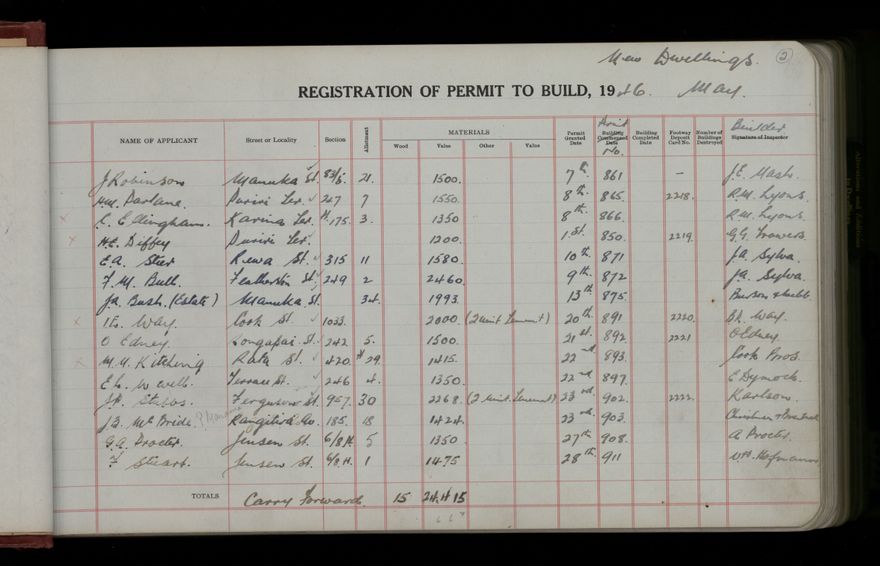 New Dwellings. 2
REGISTRATION OF PERMIT TO BUILD, 1946. May.
NAME OF APPLICANT Street or Locality Section Allotment MATERIALS Wood Value Other Value Permit Granted Date Building Commenced Date No. Building Completed Date Footway Deposit Card No. Number of Buildings Destroyed Builder Signature of Inspector
J Robinson Manuka St. 83/5. 21. 1500. 7th. 861 – J.E. Mash.
Hm. Parlane. Puriri Ter. 247 7 1550. 8th. 865. 2218. R.M. Lyons.
C. Ellingham. Karina Ter. 175. 3. 1350 8th. 866. R.M. Lyons.
H.E. Diffey Puriri Ter. 1200. 1st. 850. 2219. G.G.
E.A. Steer Rewa St. 315 11 1580. 10th. 871 J.A. Sylva.
F. M. Bull. Featherston St. 249 2 2460. 9th. 872 J.A. Sylva.
J.A. Bush. (Estate) Manuka St. 34. 1993. 13th. 875.
Way. Cook St. 1033. 2000. (2 Unit Tenement) 20th. 891 2220. Way.
O Edney. Longapai St. 242 5. 1500. 21st. 892 2221 O Edney.
M.M. Kitching Rata St. 420. 29. 1415. 22nd. 893. Cook Bros.
Terrace St. 246 4. 1350. 22nd. 897. E Dymock.
J.H. Stubbs. Ferguson St. 957. 30 2268. (2 Unit Tenement) 23rd. 902. 2222. Karlson.
J.B. McBride. Rangitira Av. 185. 18 1424. 23rd. 903.
G.A. Procter. Jensen St. 6/8 H. 5 1350. 27th. 908. A Procter.
F Steart. Jensen St. 6/8 H. 1 1475 28th. 911 Hofmann
TOTALS Carry Forward. 15 24,415